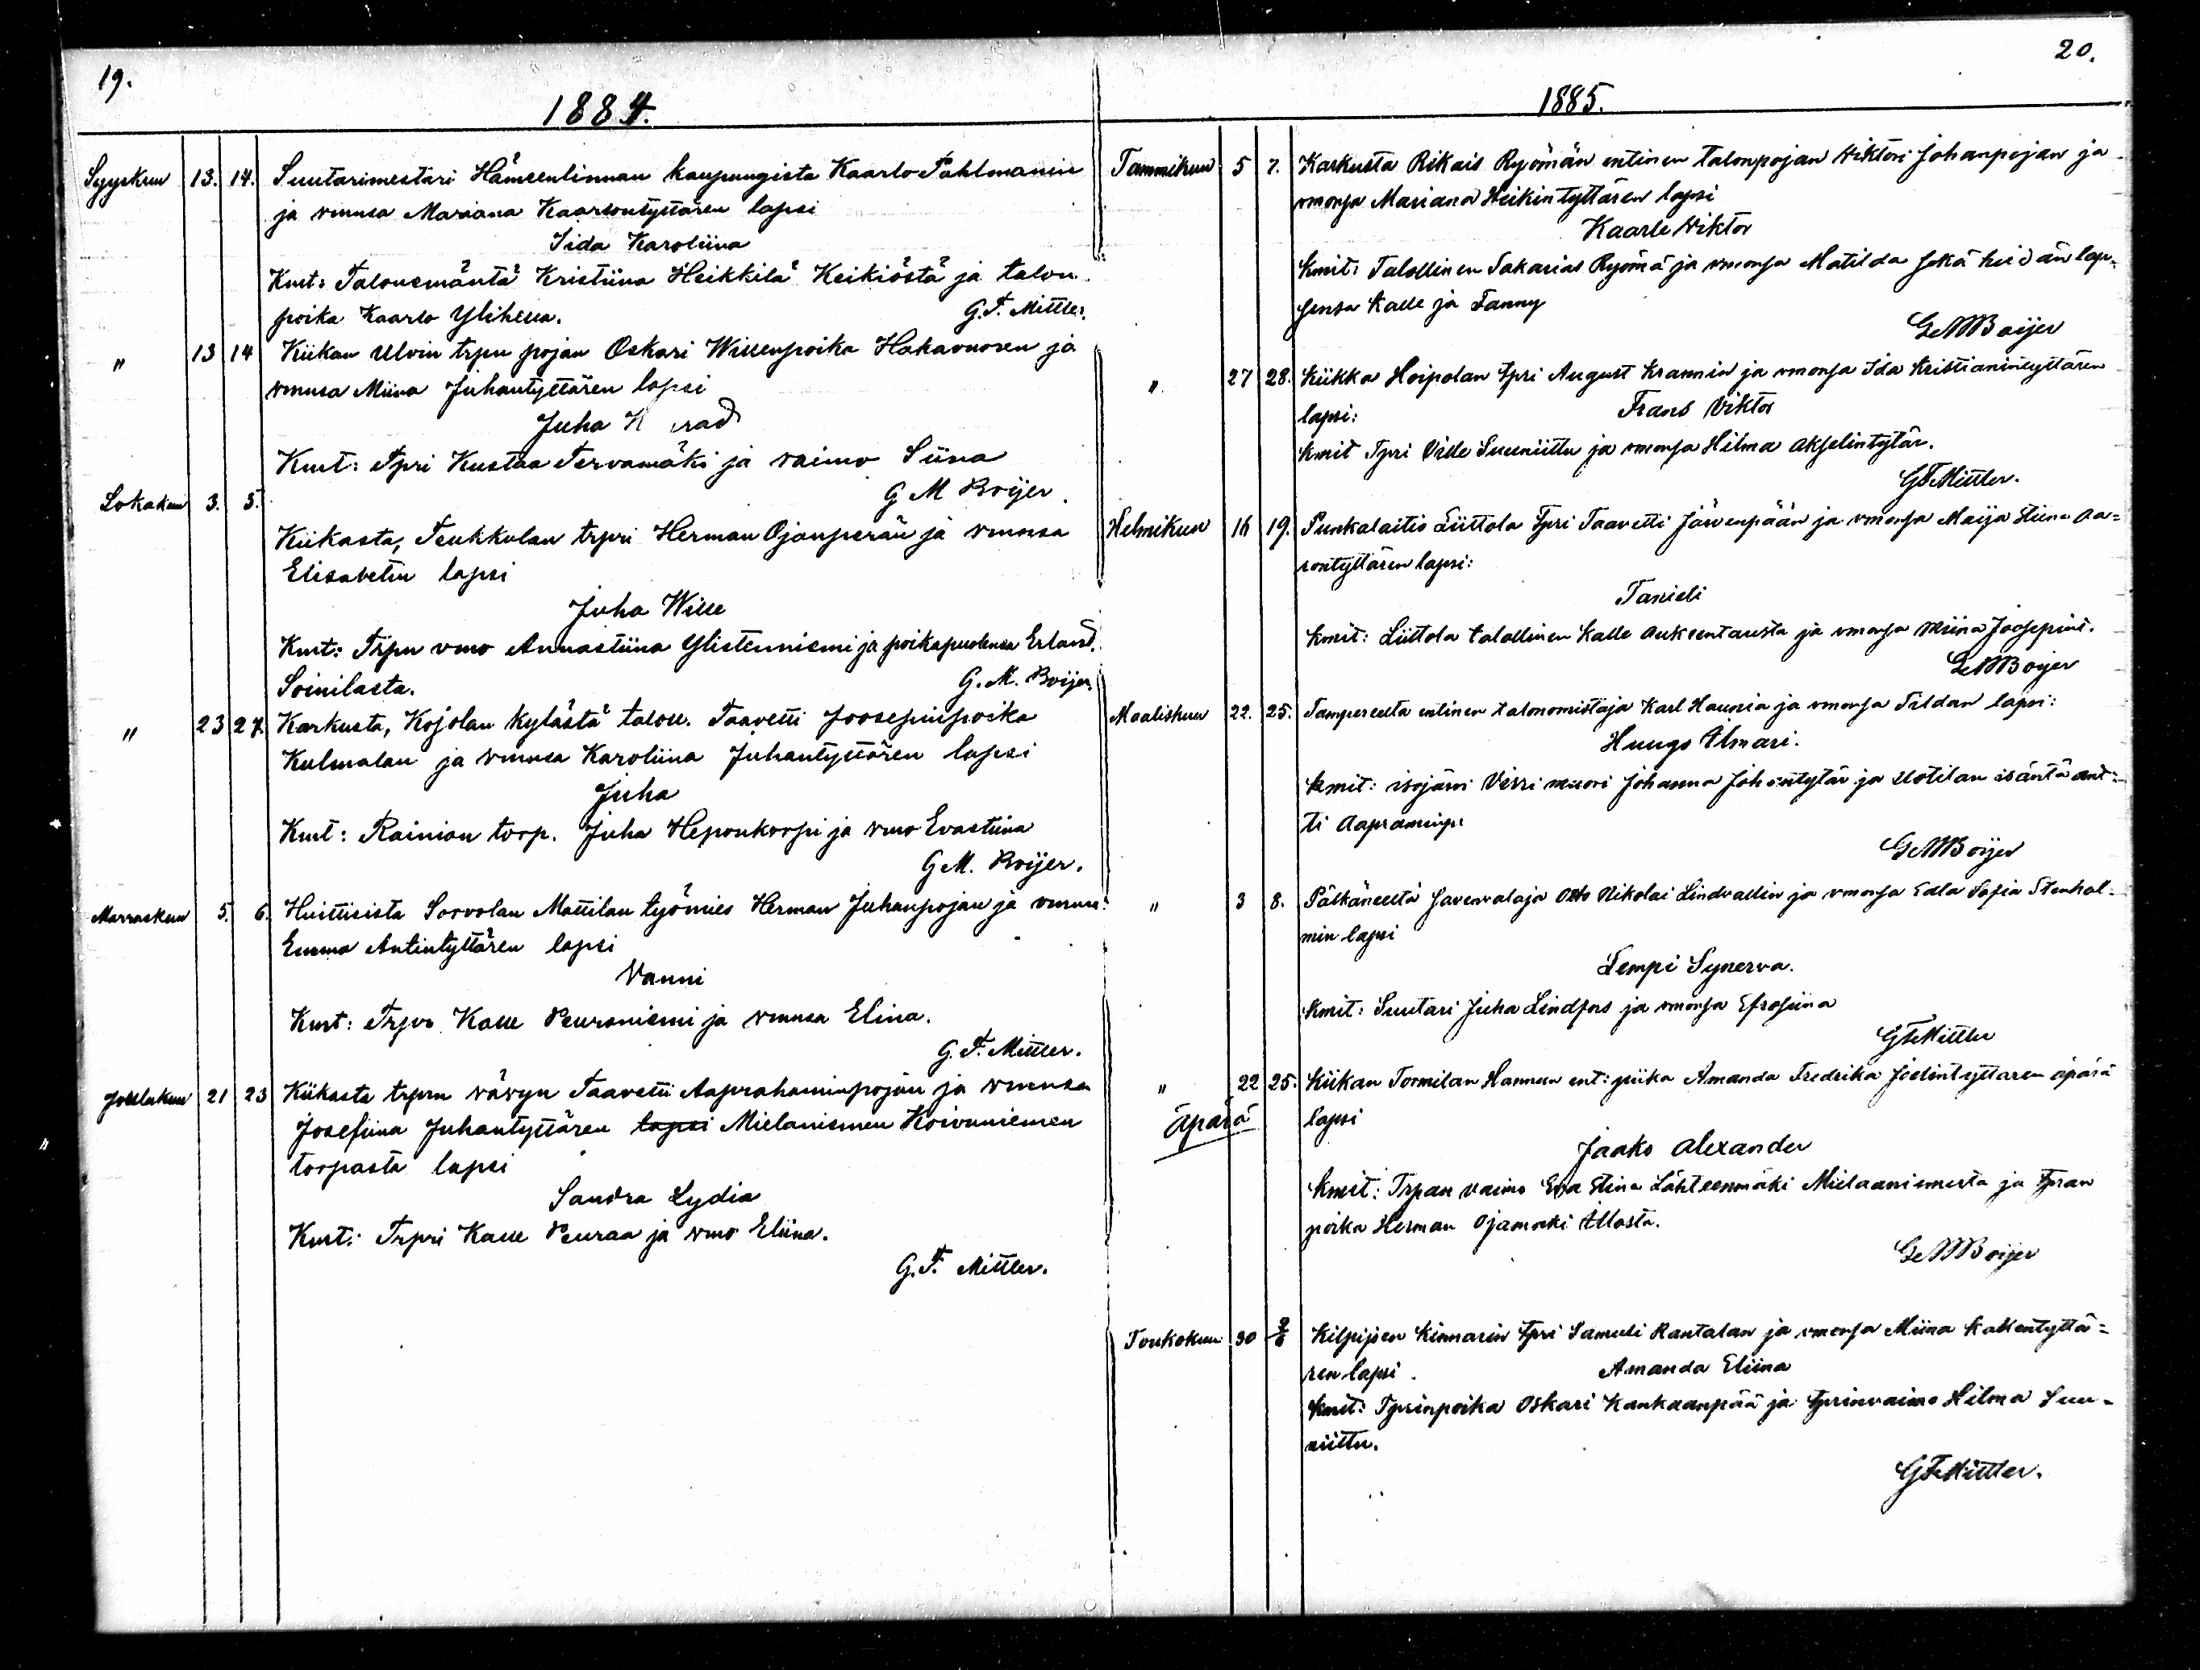 19.
1884.
Syyskun 13. 14. Suutarimestari Hämeenlinnan kaupungista Kaarlo Pahlmanin
ja vmnsa Mariana Kaarlontyttären lapsi
Iida Karoliina
Kmt: Talonemäntä Kristiina Heikkilä Keikiöstä ja talon
poika Kaarlo Ylihella.
G. F. Mittler.
" 13 14 Kiikan Ulvin trpn pojan Oskari Willenpoika Hakavuoren ja
vmnsa Miina Juhantyttären lapsi
Juha K rad
Kmt: Tpri Kustaa Tervamäki ja vaimo Siina
G M Boijer.
Lokakun 3. 5.
Kiikasta, Teukkulan trpri Herman Ojanperän ja vmnsa
Elisabetin lapsi
Juha Wille
Kmt: Trpn vmo Annastiina Ylistenniemi ja poikapuolensa Erland
Soinilasta.
G. M. Boijer.
" 23 27. Karkusta, Kojolan kylästä taloll. Taavetti Joosepinpoika
Kulmalan ja vmnsa Karoliina Juhantyttären lapsi
Juha
Kmt: Rainion torp. Juha Heponkorpi ja vmo Evastiina
G M. Boijer.
Marraskun 5. 6. Huittisista Sorvolan Mattilan työmies Herman Juhanpojan ja vmns:
Emma Antintyttären lapsi
Vanni
Kmt: Trpr Kalle Peuraniemi ja vmnsa Elina.
G. F. Mittler.
Joulukun 21 23 Kiikasta trprn vävyn Taavetti Aaprahaminpojan ja vmnsa
Josefiina Juhantyttären lapsi Mielanismen Koivuniemen
torpasta lapsi
Sandra Lydia
Kmt: Trpri Kalle Peuraa ja vmo Eliina.
G. F. Mittler.
20.
1885.
Tammikun 5 7. Karkusta Rikais Ryömän entinen talonpojan Viktori Johanpojan ja
vmonsa Mariana Heikintyttären lapsi
Kaarle Viktor
Kmit: Talollinen Sakarias Ryömä ja vmonsa Matilda sekä heidän lap-
sensa Kalle ja Fanny
GMBoijer
" 27 28. Kiikka Hoipolan tpri August Krannin ja vmonsa Ida Kristianintyttären
lapsi:
Frans Viktor
Kmit Tpri Ville Suuniittu ja vmonsa Hilma Akselintytär.
GFMittler.
Helmikun 16 19. Punkalaitio Liittola Tpri Taavetti Järvenpään ja vmonsa Maija Stiina Aa=
rontyttären lapsi:
Tanieli
Kmit: Liittola talollinen Kalle Auksentausta ja vmonsa Miina Joosepint.
GMBoijer
Maaliskun 22. 25. Tampereelta entinen talonomistaja Karl Haunia ja vmonsa Tildan lapsi:
Huugo Ilmari.
Kmit: isojärvi Virri muori Johanna Joh tytär ja Uotilan isäntä ant=
ti
GMBoijer
" 3 8. Pälkäneeltä savenvalaja Otto Nikolai Lindvallin ja vmonsa Edla Sofia Stenhol-
min lapsi
Tempi Synerva.
Kmit: Suutari Juha Lindfors ja vmonsa Efrosiina
GFMittler
" 22 25. Kiikan Tormilan Hannun ent: piika Amanda Fredrika Joelintyttären äpärä
äpärä
lapsi
Jaako Alexander
Kmit: Trpan vaimo Eva Stina Lähteenmäki Mielaaniemestä ja tpran
poika Herman Ojamäki Illosta.
GMBoijer
Toukokun 30 2/6 Kilpijoen Kinnarin tpri Samuli Rantalan ja vmonsa Miina Kallentyttä=
ren lapsi.
Amanda Eliina
Kmit: Tprinpoika Oskari Kankaanpää ja tprinvaimo Hilma Suu-
niittu.
GFMittler.